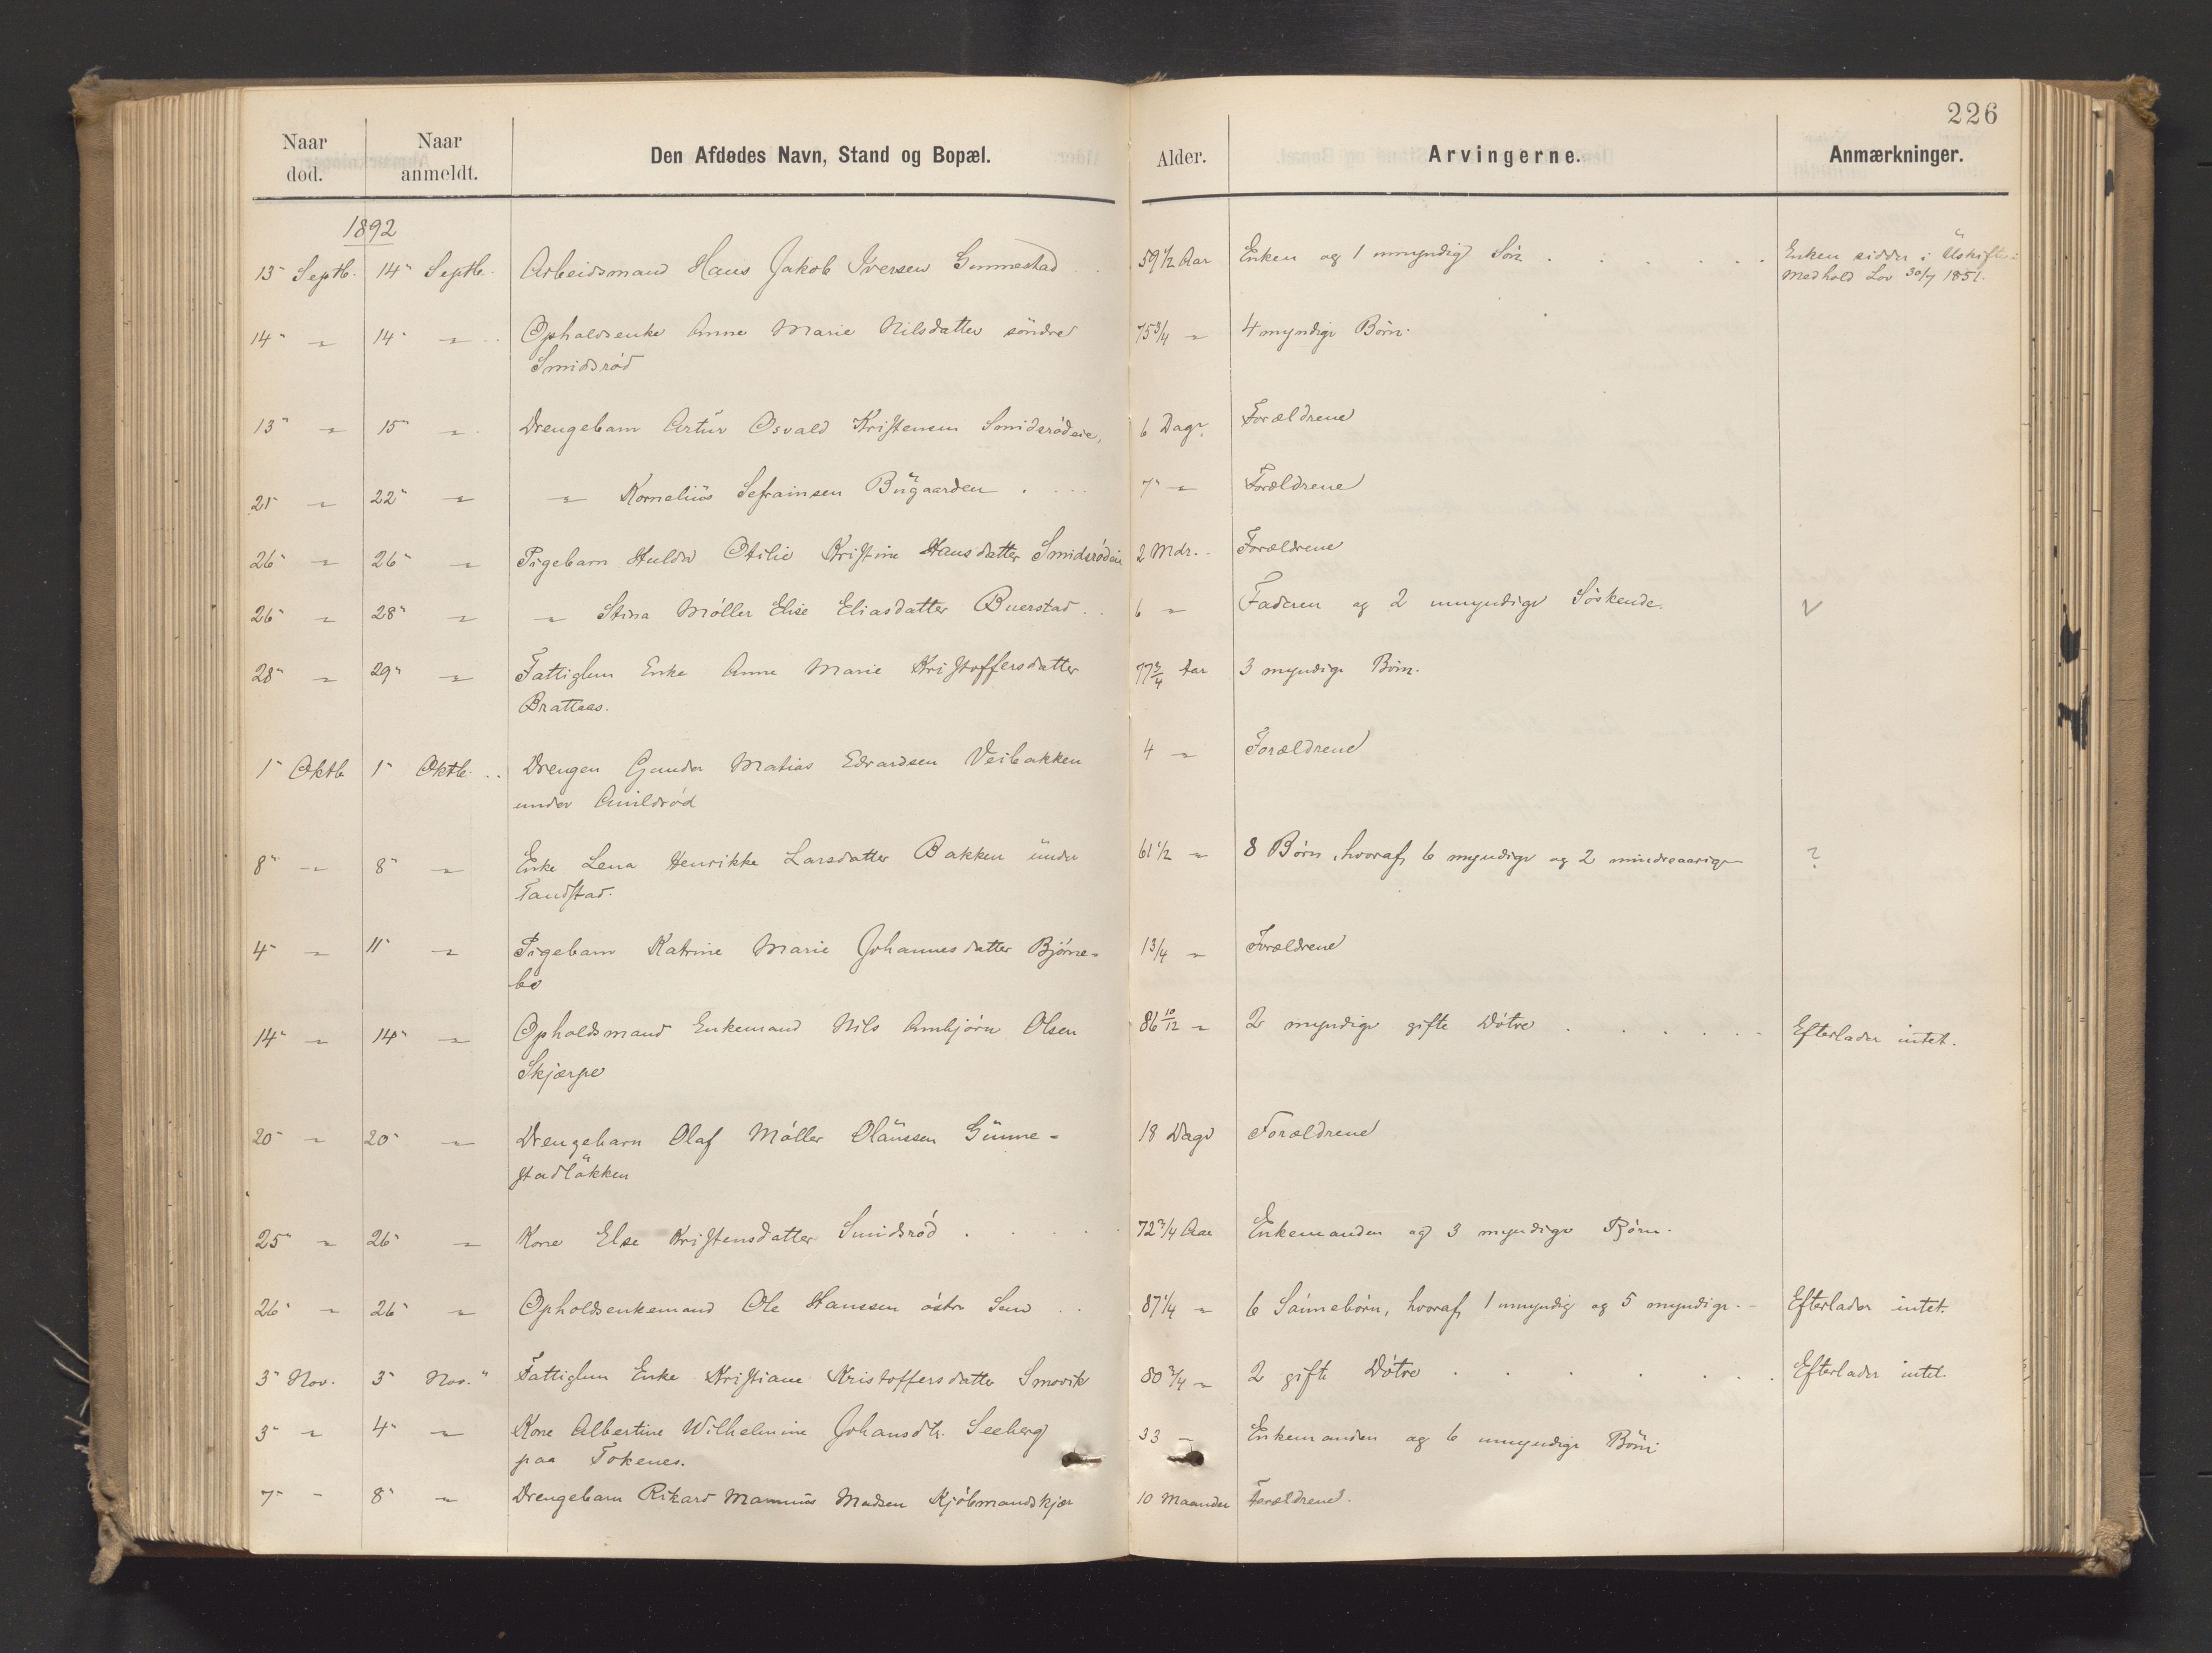 226
Naar død. Naar anmeldt. Den Afdødes Navn, Stand og Bopæl. Alder. Arvingerne. Anmærkninger.
1892
13 Septb. 14 Septb. Arbeidsmand Hans Jakob Iversen Gunnestad 59 1/2 Aar Enken og 1 umyndig Søn Enken sidder i Uskifte i
Medhold Lov 30/7 1851.
14 " 14 " Opholdsenke Anne Marie Nilsdatter söndre 75 3/4 " 4 myndige Börn.
Smidsröd
13 " 15 " Drengebarn Artur Osvald Kristensen Smidsrödeie, 6 Dage Forældrene
21 " 22 " " Kornelius Sefrainsen Bugaarden 7 " Forældrene
26 " 26 " Pigebarn Hulda Otilie Kristine Hansdatter Smidsrödeie 2 Mdr. Forældrene
26 " 28 " " Stina Möller Elise Eliasdatter Buerstad 6 " Faderen og 2 umyndige Söskende. V
28 " 29 " Fattiglem Enke Anne Marie Kristoffersdatter 77 3/4 Aar 3 myndige Börn.
Brattaas.
1 Oktb 1 Oktb. Drengen Gunder Matias Edvardsen Veibakken 4 " Forældrene
under
8 " 8 " Enke Lena Henrikke Larsdatter Bakken under 61 1/2 " 8 Börn, hvoraf 6 myndige og 2 mindreaarige ?
Tandstad.
4 " 11 " Pigebarn Katrine Marie Johannesdatter Björne- 1 3/4 " Forældrene
bo
14 " 14 " Opholdsmand Enkemand Nils Anbjörn Olsen 86 10/12 " 2 myndige gifte Dötre Efterlader intet.
Skjærpe
20 " 20 " Drengebarn Olaf Möller Olaussen Gunne- 18 Dage Forældrene
stadlökken
25 " 26 " Kone Else Kristensdatter Smidsröd 72 3/4 Aar Enkemanden og 3 myndige Börn.
26 " 26 " Opholdsenkemand Ole Hanssen östre Sem 87 1/4 " 6 Sönnebörn, hvoraf 1 umyndig og 5 myndige. Efterlader intet.
3 Nov. 3 Nov. Fattiglem Enke Kristiane Kristoffersdatter Smovik 80 3/4 " 2 gifte Dötre Efterlader intet.
3 " 4 " Kone Albertine Wilhelmine Johansdtr. Seeberg 33 " Enkemanden og 6 umyndige Börn
paa Tokenes.
7 " 8 " Drengebarn Rikard Madsen Kjöbmandskjær 10 Maaneder Forældrene.